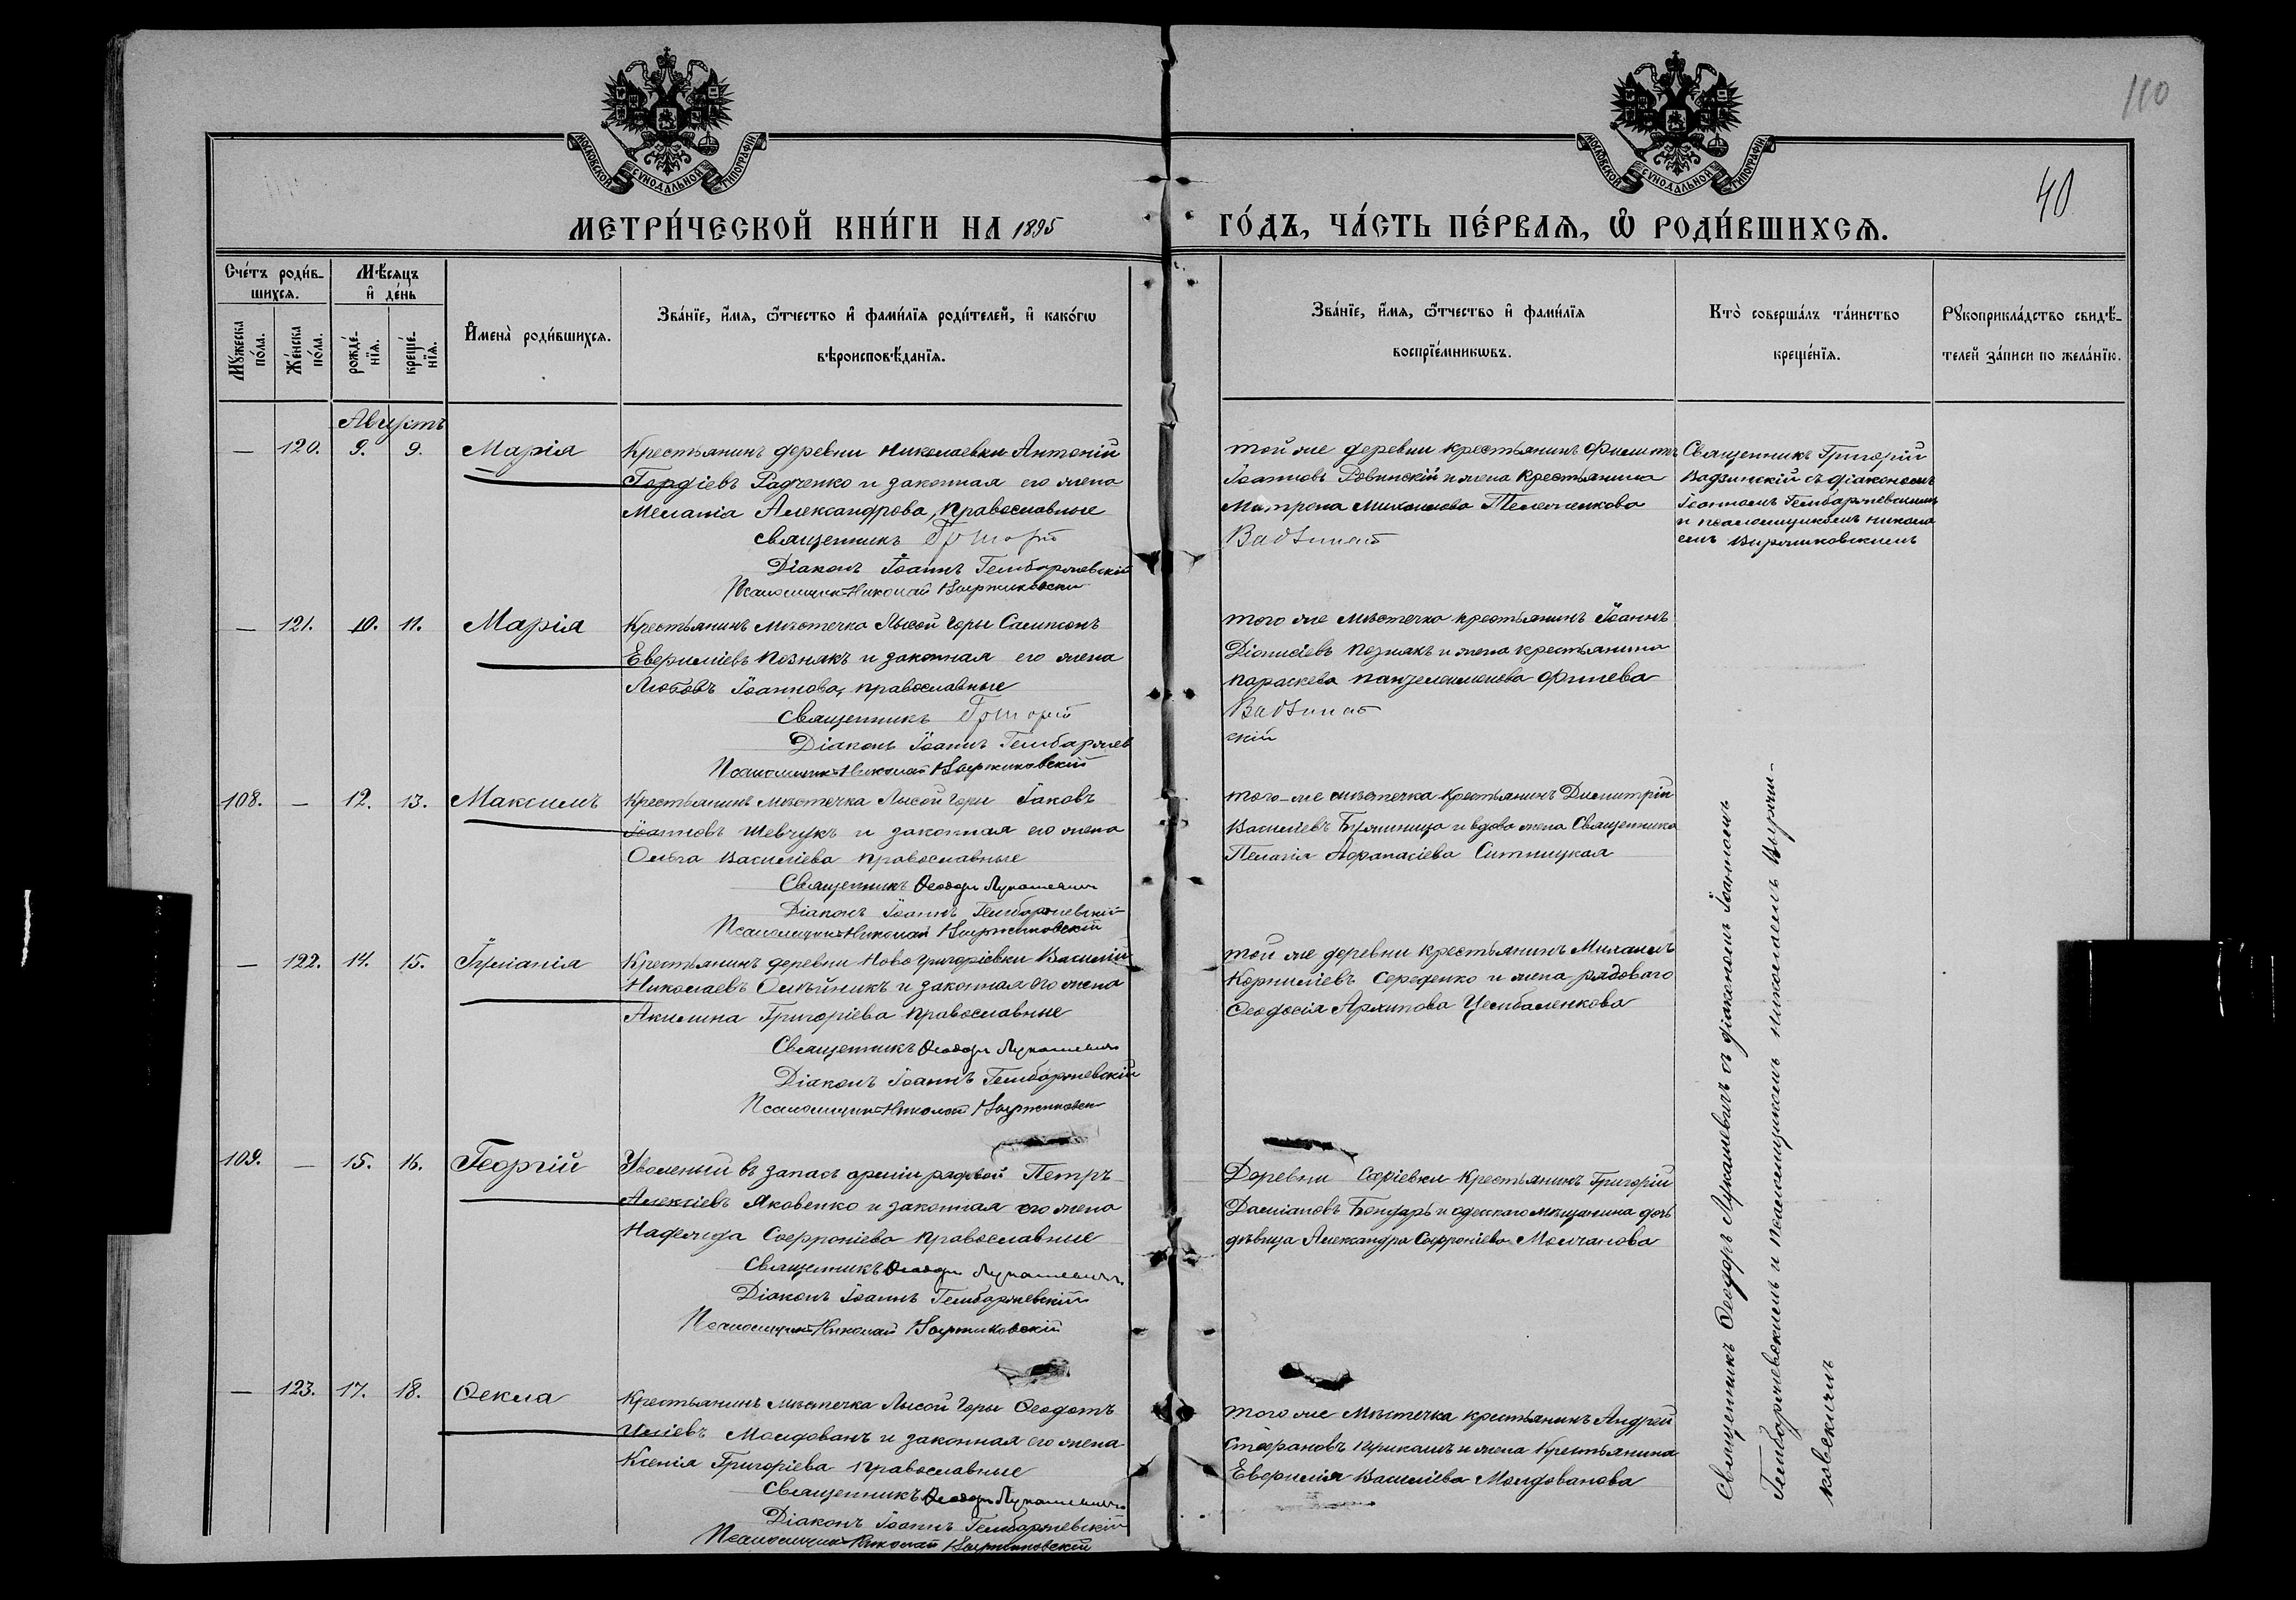 110
40
МОСКОВСКОЙ СѴНОДАЛЬНОЙ ТИПОГРАФІИ
МОСКОВСКОЙ СѴНОДАЛЬНОЙ ТИПОГРАФІИ
МЕТРИ́ЧЕСКОЙ КНИ́ГИ НА 1895 ГО́ДЪ, ЧА́СТЬ ПЕ́РВАѦ, Ѡ РОДИ́ВШИХСѦ.
Сче́тъ роди́в-
шихсѧ.
Мꙋ́жеска по́ла.
Же́нска по́ла.
Мѣ́сѧцъ
и҆ де́нь
рожде́-
нїѧ.
креще́-
нїѧ.
И҆мена̀ роди́вшихсѧ.
Зва́нїе, и҆́мѧ, ѻ҆́тчество и҆ фами́лїѧ роди́телей, и҆ како́гѡ
вѣроисповѣ́данїѧ.
Зва́нїе, и҆́мѧ, ѻ҆́тчество и҆ фами́лїѧ
воспрїе́мникѡвъ.
Кто̀ соверша́лъ та́инство
креще́нїѧ.
Рꙋкоприкла́дство свидѣ́-
телей за́писи по жела́нїю.
Августъ
— 120. 9. 9. Марія
Крестьянинъ деревни Николаевки Антоній
Гордіевъ Радченко и законная его жена
Меланія Александрова, православные
Священникъ Григорій
Діаконъ Іоаннъ Гембаржевскій
Псаломщикъ Николай
той же деревни крестьянинъ Филиппъ
Іоанновъ Ровинскій и жена крестьянина
Матрона Михаилова
Вадзинскій
Священникъ Григорій
Вадзинскій съ діакономъ
Іоанномъ Гембаржевскимъ
и псаломщикомъ Никола
емъ Виржиковскимъ
— 121. 10. 11. Марія
Крестьянинъ мѣстечка Лысой Горы Сампсонъ
Евфиміевъ Познякъ и законная его жена
Любовь Іоаннова, православные
Священникъ Григорій
Діаконъ Іоаннъ Гембаржев
Псаломщикъ Николай Виржиковскій
того же мѣстечка крестьянинъ Іоаннъ
Діонисіевъ Познякъ и жена крестьянина
Параскева Пантелеимонова
Вадзинс
скій
108. — 12. 13. Максимъ
Крестьянинъ мѣстечка Лысой Горы Іаковъ
Іоанновъ Шевчукъ и законная его жена
Ольга Василіева православные
Священникъ Ѳеодоръ Лукашевичъ
Діаконъ Іоаннъ Гембаржевскій
Псаломщикъ Николай Виржиковскій
того-же мѣстечка крестьянинъ Димитрій
Василіевъ и вдова жена Священника
Пелагія Афанасіева Ситницкая
— 122. 14. 15. Іуліанія
Крестьянинъ деревни Ново Григоріевки Василій
Николаевъ Олѣйникъ и законная его жена
Акилина Григоріева православные
Священникъ Ѳеодоръ Лукашевичъ
Діаконъ Іоаннъ Гембаржевскій
Псаломщикъ Николай Виржиковск
той же деревни крестьянинъ Михаилъ
Корниліевъ Середенко и жена рядового
Ѳеодосія Архипова Цембаленкова
109. — 15. 16. Георгій
Уволеный въ запасъ арміи рядовой Петръ
Алексіевъ Яковенко и законная его жена
Надежда Софроніева православные
Священникъ Ѳеодоръ Лукашевичъ
Діаконъ Іоаннъ Гембаржевскій
Псаломщикъ Николай Виржиковскій
Деревни Софіевки крестьянинъ Григорій
Даміановъ Бондарь и одесскаго мѣщанина дочь
дѣвица Александра Софроніева Молчанова
— 123. 17. 18. Ѳекла
Крестьянинъ мѣстечка Лысой Горы Ѳеодотъ
Иліевъ Молдованъ и законная его жена
Ксенія Григоріева православные
Священникъ Ѳеодоръ Лукашевичъ
Діаконъ Іоаннъ Гембаржевскій
Псаломщикъ Николай Виржиковскій
того же мѣстечка крестьянинъ Андрей
Стефановъ и жена крестьянина
Евфимія Василіева Молдованова
Священникъ Ѳеодоръ Лукашевичъ съ діакономъ Іоанномъ
Гембаржевскимъ и псаломщикомъ Николаемъ Виржи-
ковскимъ